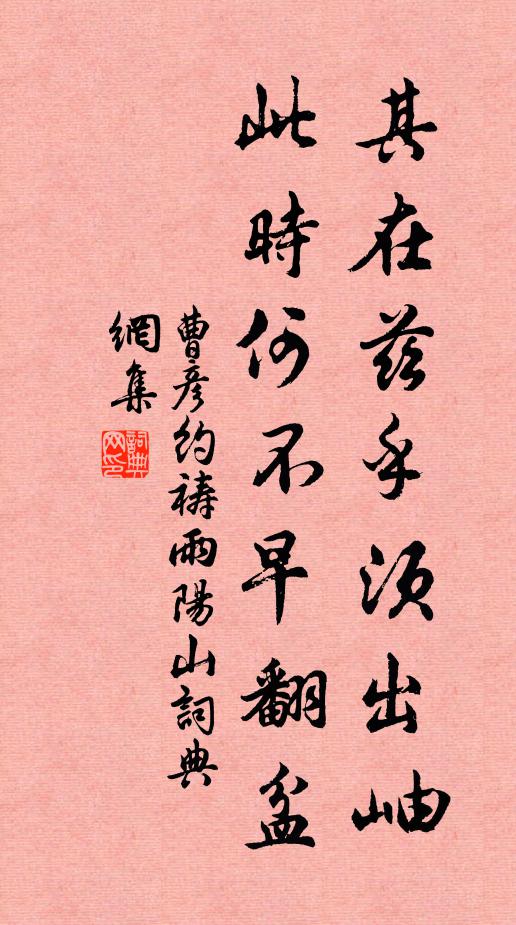 其在茲乎須出岫
此時何不早翻盆
曹彥約禱雨陽山詞典
網集
詞典
網印